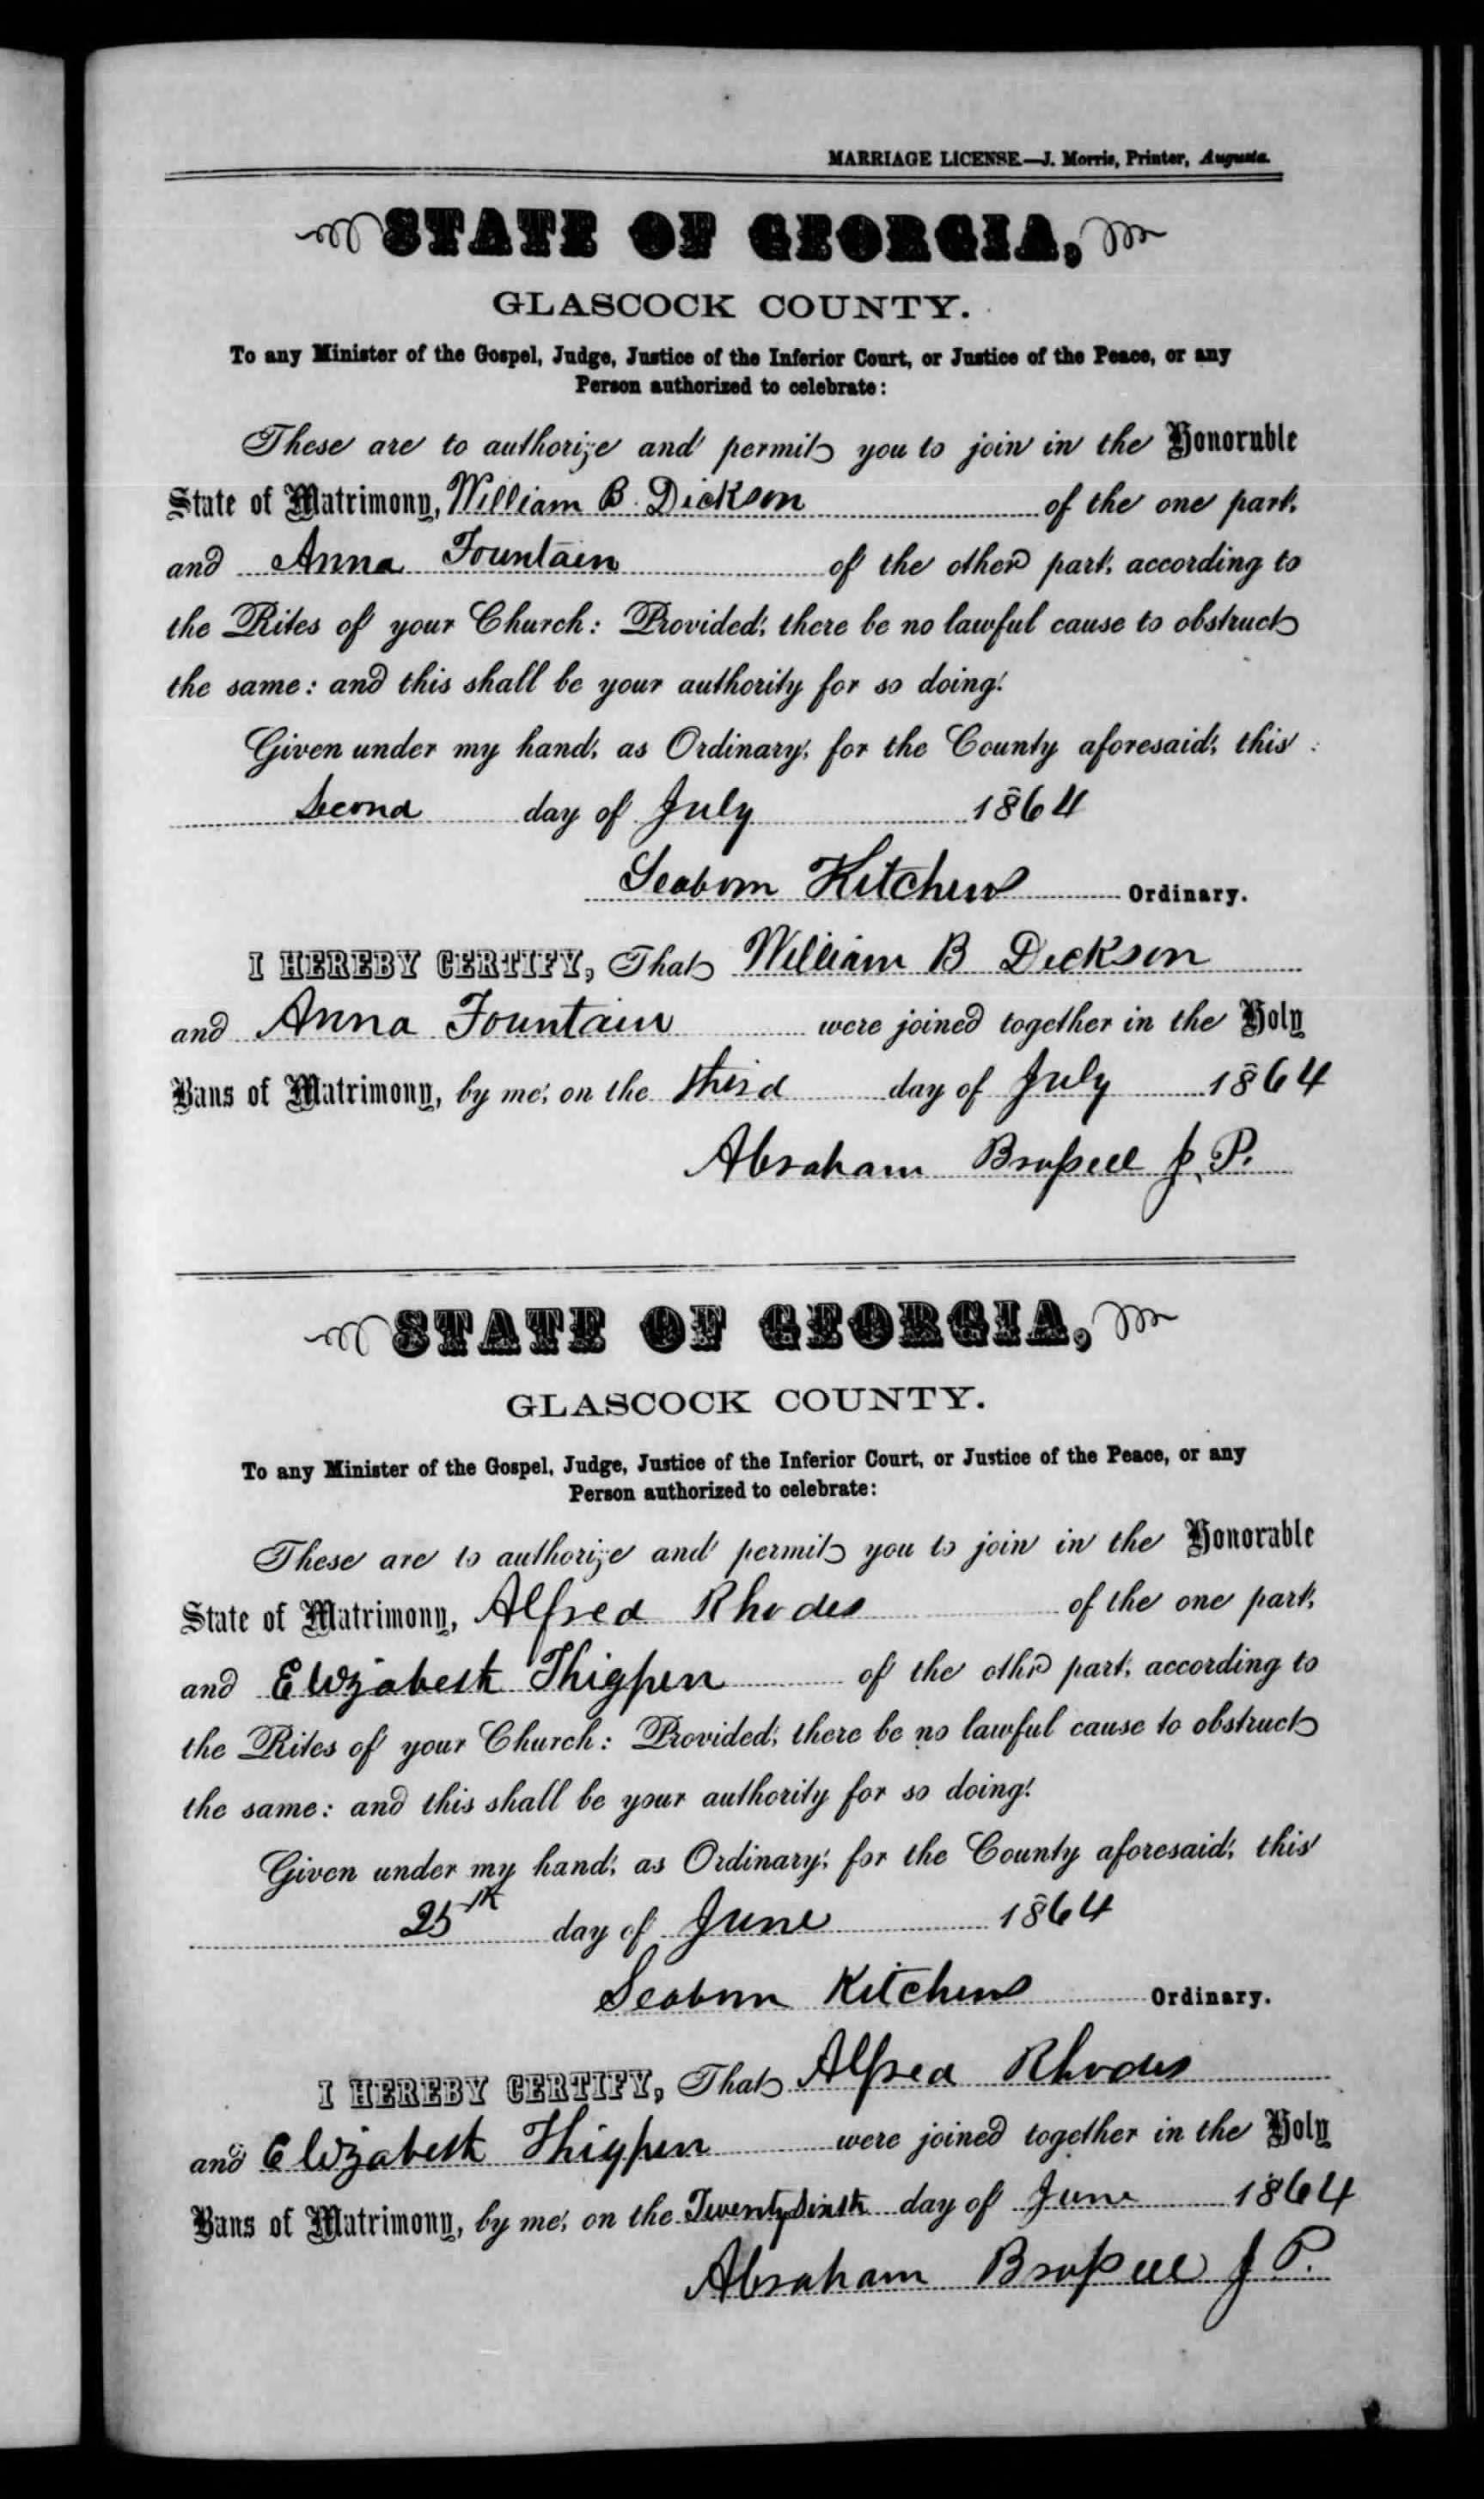 MARRIAGE LICENSE—J. Morris, Printer, Augusta.
STATE OF GEORGIA,
GLASCOCK COUNTY.
To any Minister of the Gospel, Judge, Justice of the Inferior Court, or Justice of the Peace, or any
Person authorized to celebrate:
These are to authorize and permit you to join in the Honorable
State of Matrimony, William B. Dickson of the one part,
and Anna Fountain of the other part, according to
the Rites of your Church: Provided, there be no lawful cause to obstruct
the same: and this shall be your authority for so doing.
Given under my hand, as Ordinary, for the County aforesaid, this
Second day of July 1864
Seaborn Kitchens Ordinary.
I HEREBY CERTIFY, That William B Dickson
and Anna Fountain were joined together in the Holy
Bans of Matrimony, by me, on the third day of July 1864
Abraham Brassell J. P.
STATE OF GEORGIA,
GLASCOCK COUNTY.
To any Minister of the Gospel, Judge, Justice of the Inferior Court, or Justice of the Peace, or any
Person authorized to celebrate:
These are to authorize and permit you to join in the Honorable
State of Matrimony, Alfred Rhodes of the one part,
and Elizabeth Thigpen of the other part, according to
the Rites of your Church: Provided, there be no lawful cause to obstruct
the same: and this shall be your authority for so doing.
Given under my hand, as Ordinary, for the County aforesaid, this
25th day of June 1864
Seaborn Kitchens Ordinary.
I HEREBY CERTIFY, That Alfred Rhodes
and Elizabeth Thigpen were joined together in the Holy
Bans of Matrimony, by me, on the Twenty Sixth day of June 1864
Abraham Brassell J P.